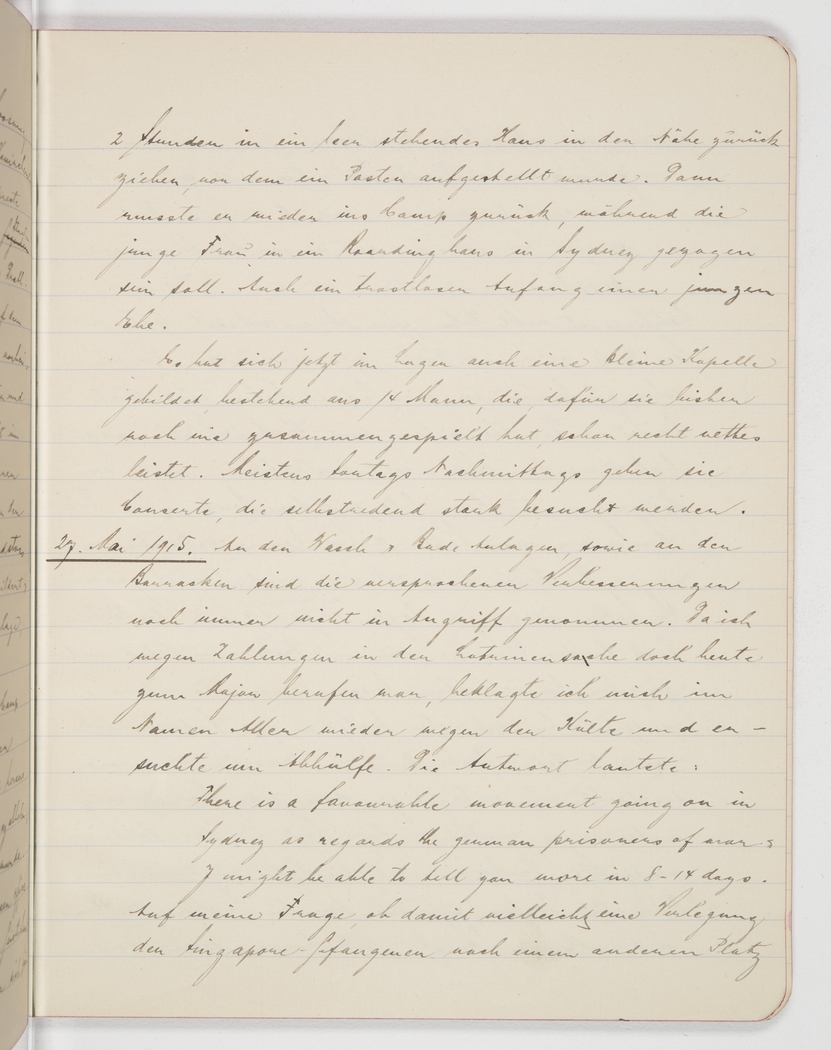 2 Stunden in ein leer stehendes Haus in der Nähe zurück
ziehen, vor dem ein Posten aufgestellt wurde. Dann
musste er wieder ins Camp zurück, während die
junge Frau in ein Boardinghaus in Sydney gezogen
sein soll. Auch ein trostloser Anfang einer jungen
Ehe.
Es hat sich jetzt im Lager auch eine kleine Kapelle
gebildet, bestehend aus 14 Mann, die, dafür sie bisher
noch nie zusammengespielt hat, schon recht nettes
leistet. Meistens Sontags Nachmittags geben sie
Conzerte, die selbstredend stark besucht werden.
27. Mai 1915. An den Wasch & Bade Anlagen, sowie an den
Barracken sind die versprochenen Verbesserungen
noch immer nicht in Angriff genommen. Da ich
wegen Zahlungen in der Latrinensache doch heute
zum Major berufen war, beklagte ich mich im
Namen Aller wieder wegen der Kälte und er-
suchte um Abhülfe. Die Antwort lautete:
There is a favourable movement going on in
Sydney as regards the german prisoners of war:
I might be able to tell you more in 8-14 days.
Auf meine Frage, ob damit vielleicht eine Verlegung
der Singapore-Gefangenen nach einem anderen Platz